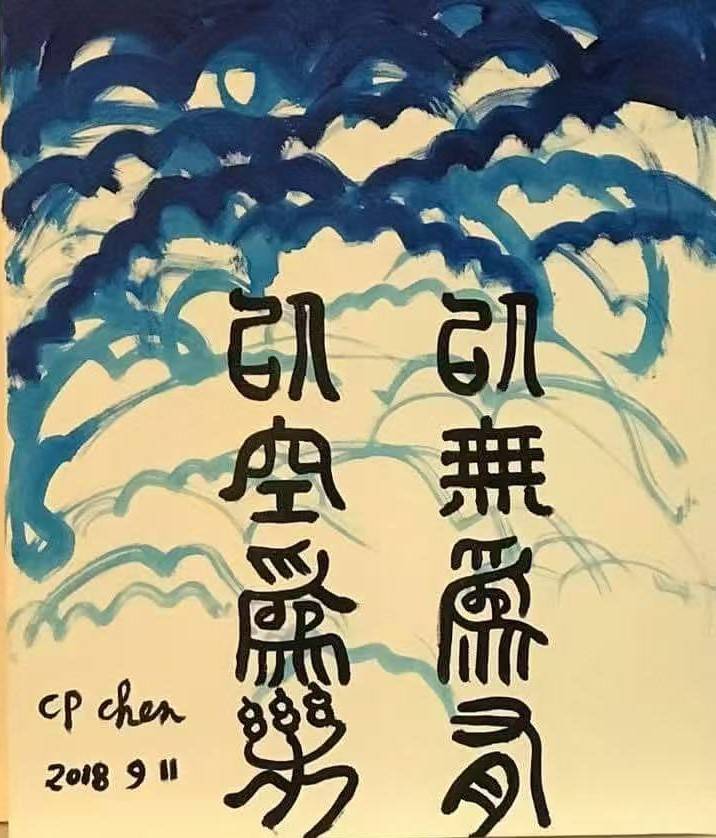 以無為有
以空為樂
CP Chen
2018 9 11